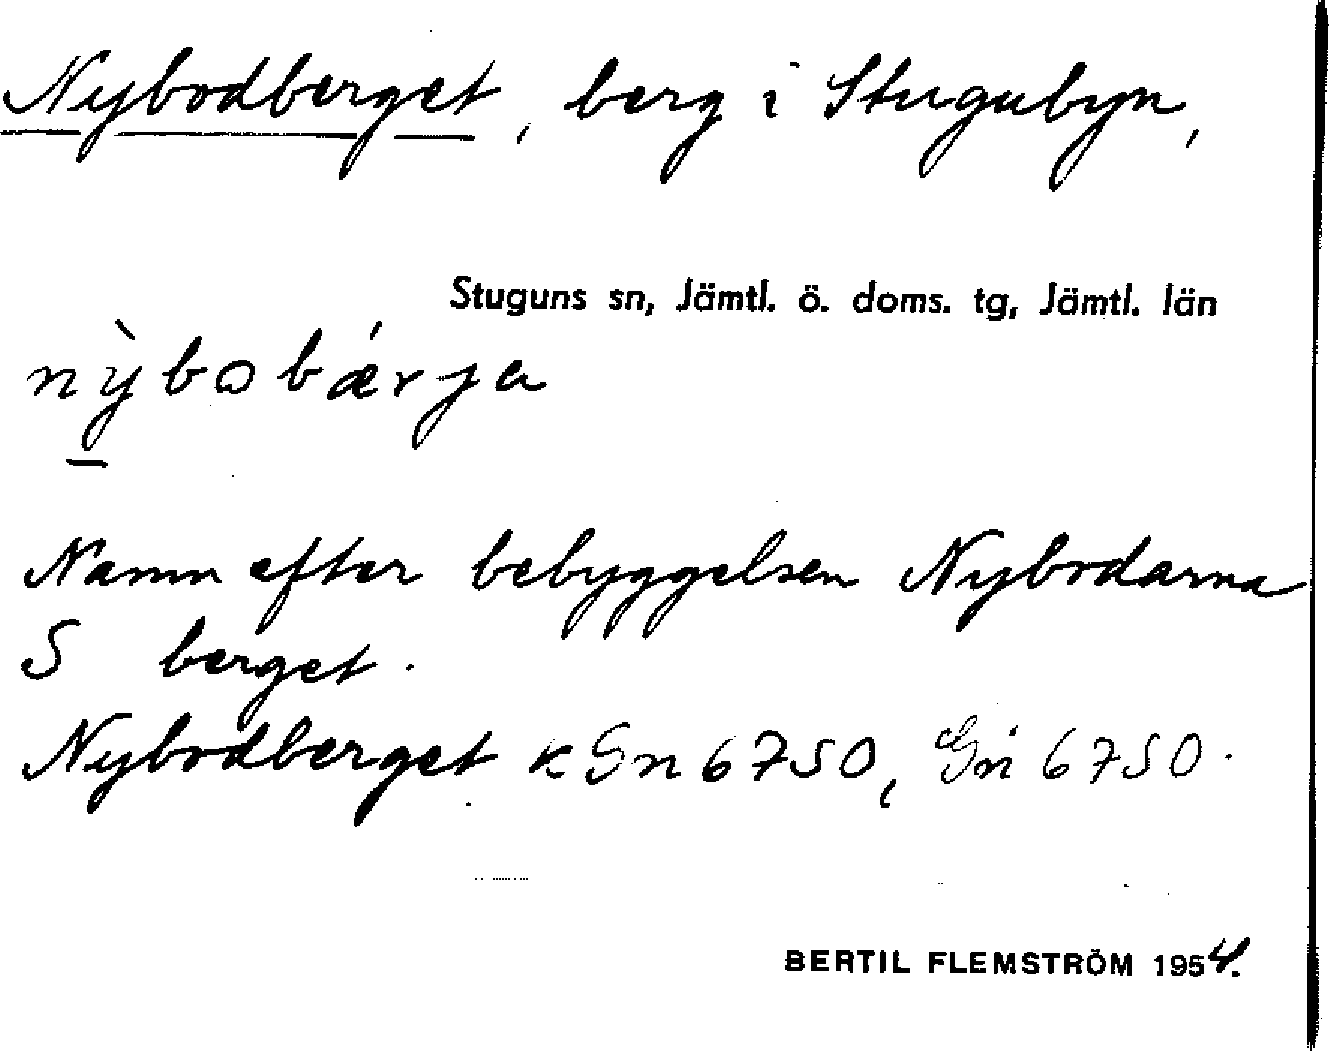 Nybodberget, berg i Stugubyn,
Stuguns sn, Jämtl. ö. doms. tg, Jämtl. län
nỳbobǽrja
Namn efter bebyggelsen Nybodarna
S berget.
Nybodberget k Gn 6750, Gn 6750.
BERTIL FLEMSTRÖM 1954.